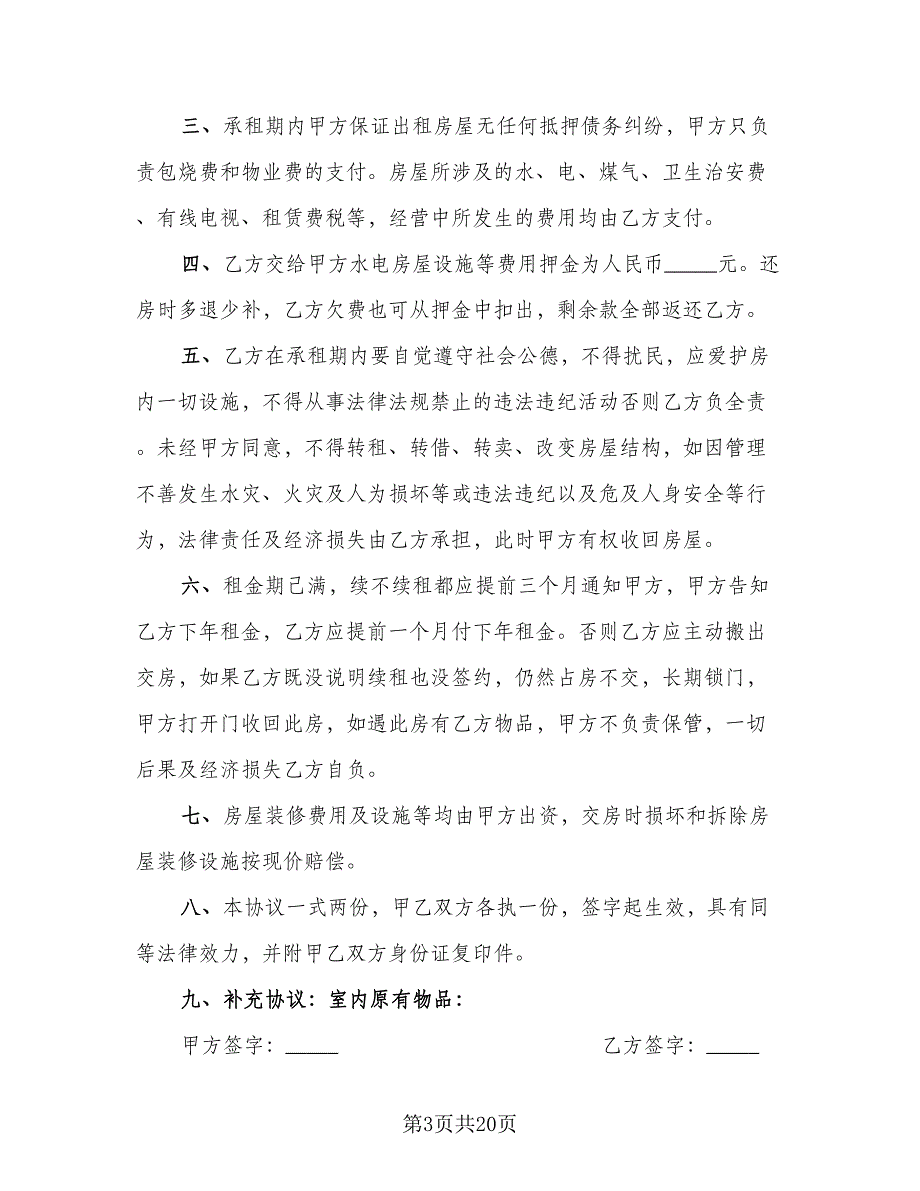 三、承租期内甲方保证出租房屋无任何抵押债务纠纷，甲方只负
责包烧费和物业费的支付。房屋所涉及的水、电、煤气、卫生治安费
、有线电视、租赁费税等，经营中所发生的费用均由乙方支付。
四、乙方交给甲方水电房屋设施等费用押金为人民币_____元。还
房时多退少补，乙方欠费也可从押金中扣出，剩余款全部返还乙方。
五、乙方在承租期内要自觉遵守社会公德，不得扰民，应爱护房
内一切设施，不得从事法律法规禁止的违法违纪活动否则乙方负全责
。未经甲方同意，不得转租、转借、转卖、改变房屋结构，如因管理
不善发生水灾、火灾及人为损坏等或违法违纪以及危及人身安全等行
为，法律责任及经济损失由乙方承担，此时甲方有权收回房屋。
六、租金期己满，续不续租都应提前三个月通知甲方，甲方告知
乙方下年租金，乙方应提前一个月付下年租金。否则乙方应主动搬出
交房，如果乙方既没说明续租也没签约，仍然占房不交，长期锁门，
甲方打开门收回此房，如遇此房有乙方物品，甲方不负责保管，一切
后果及经济损失乙方自负。
七、房屋装修费用及设施等均由甲方出资，交房时损坏和拆除房
屋装修设施按现价赔偿。
八、本协议一式两份，甲乙双方各执一份，签字起生效，具有同
等法律效力，并附甲乙双方身份证复印件。
九、补充协议：室内原有物品：
甲方签字：_____ 乙方签字：_____
第3页共20页